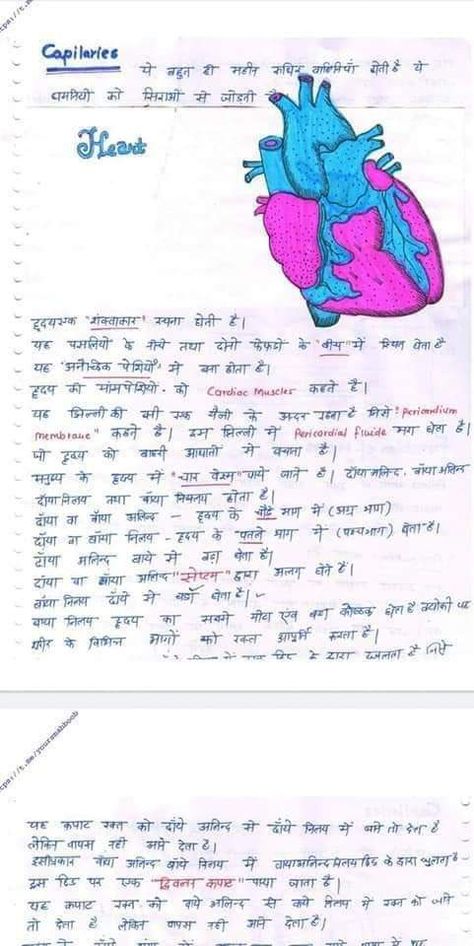 Capilaries
ये बहुत ही महीन रूधिर वाहिनियाँ होती है ये
धमनियों को सिराओं से जोडती है
Heart
हृदयएक "शंक्वाकार" रचना होती है।
यह पसलियों के नीचे तथा दोनो फेफड़ो के "बीच" में स्थित होता है
यह "अनैच्छिक पेशियों" से बना होता है।
हृदय की मांसपेशियो को Cardiac Muscles कहते है।
यह झिल्ली की बनी एक थैली के अन्दर रहता है जिसे "Pericardium
membrane" कहते है। इस झिल्ली में Pericardial fluide भरा होता है।
जो हृदय को बाहरी आघातो से बचाता है।
मनुष्य के हृदय में "चार वेश्म" पाये जाते है। दाँया अलिन्द, बाँया अलिन्द
दाँया निलय तथा बाँया निलय होता है।
दाँया वा बाँया अलिन्द - हृदय के चौडे भाग में (अग्र भाग)
दाँया वा बाँया निलय - हृदय के पतले भाग में (पश्चभाग) होता है।
दाँया अलिन्द बाये से बडा होता है।
दाँया वा बाँया अलिन्द "सेप्टम" द्वारा अलग होते है।
बाँया निलय दाँये से बडा होता है।
बाया निलय हृदय का सबसे मोटा एंव बडा कोष्ठक होता है क्योकी यह
शरीर के विभिन्न भागों को रक्त आपूर्ति करता है।
के द्वारा खुलता है जिसे
t.me/yoursmahboob
यह कपाट रक्त को दाँये अलिन्द से दाँये निलय में जाने तो देता है
लेकिन वापस नही आने देता है।
इसीप्रकार बाँया अलिन्द बाँये निलय में बायाअलिन्द निलय छिद्र के द्वारा खुलता है
इस छिद्र पर एक "द्विवलन कपाट" पाया जाता है।
यह कपाट रक्त को बाये अलिन्द से बाये निलय में रक्त को जाने
तो देता है लेकिन वापस नही आने देता है।